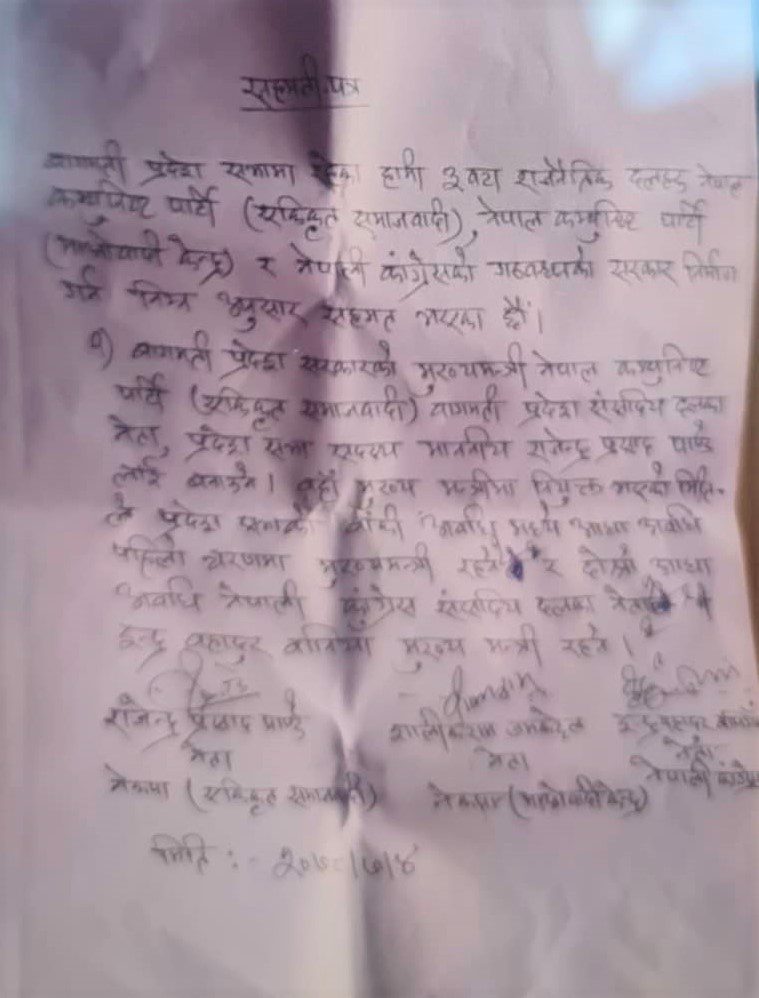 सहमती पत्र
बागमती प्रदेश सभामा रहेका हामी ३ वटा राजनैतिक दलहरु नेपाल
कम्युनिष्ट पार्टी (एकिकृत समाजवादी), नेपाल कम्युनिष्ट पार्टी
(माओवादी केन्द्र) र नेपाली कांग्रेसको गठबन्धनको सरकार निर्माण
गर्न निम्न अनुसार सहमत भएका छौं।
१) बागमती प्रदेश सरकारको मुख्यमन्त्री नेपाल कम्युनिष्ट
पार्टी (एकिकृत समाजवादी) बागमती प्रदेश संसदिय दलका
नेता, प्रदेश सभा सदस्य माननीय राजेन्द्र प्रसाद पाण्डे
लाई बनाउने। वहाँ मुख्य मन्त्रीमा नियुक्त भएको मिति-
ले प्रदेश सभाको बाँकी अवधि मध्ये आधा अवधि
पहिलो चरणमा मुख्यमन्त्री रहने र दोस्रो आधा
अवधि नेपाली कांग्रेस संसदिय दलका नेता
इन्द्र बहादुर बानिया मुख्य मन्त्री रहने।
राजेन्द्र प्रसाद पाण्डे शालिकराम जमकट्टेल इन्द्र बहादुर बानियाँ
नेता नेता नेता
नेकपा (एकिकृत समाजवादी) नेकपा (माओवादी केन्द्र) नेपाली कांग्रेस
मिति :-